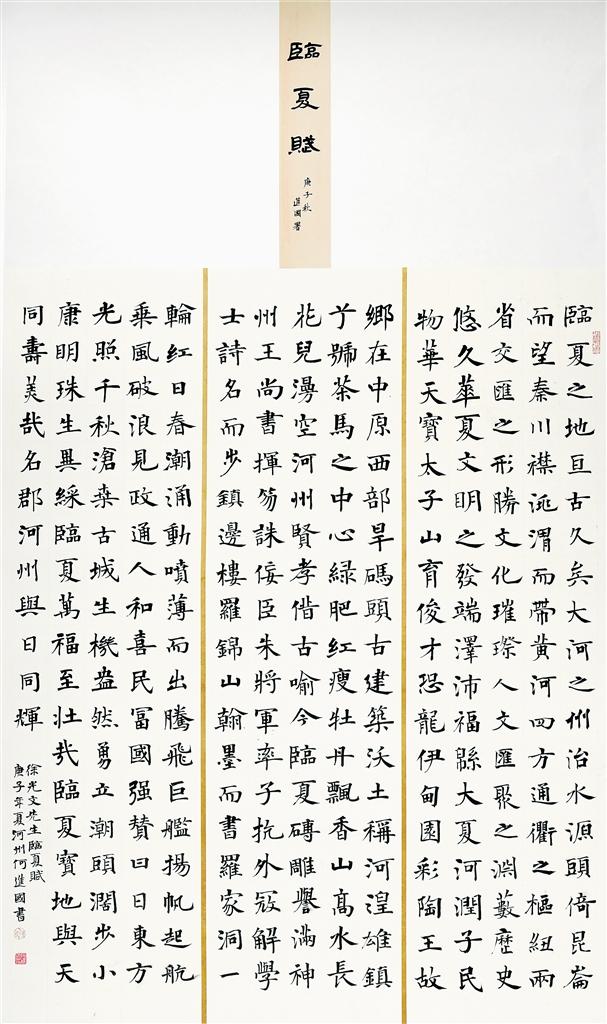 臨夏賦
庚子秋
進國署
臨夏之地亘古久矣大河之州治水源頭倚昆崙
而望秦川襟洮渭而帶黄河四方通衢之樞紐兩
省交匯之形勝文化璀璨人文匯聚之淵藪歷史
悠久華夏文明之發端澤沛福緜大夏河潤子民
物華天寶太子山育俊才恐龍伊甸園彩陶王故
鄉在中原西部旱碼頭古建築沃土稱河湟雄鎮
號茶馬之中心緑肥紅瘦牡丹飄香山高水長
花兒漫空河州賢孝借古喻今臨夏磚雕譽滿神
州王尚書揮笏誅佞臣朱將軍率子抗外冦解學
士詩名而步鎮邊樓羅錦山翰墨而書羅家洞一
輪紅日春潮涌動噴薄而出騰飛巨艦揚帆起航
乘風破浪見政通人和喜民富國强贊曰日東方
光照千秋滄桑古城生機盎然勇立潮頭濶步小
康明珠生異綵臨夏萬福至壯哉臨夏寶地與天
同壽美哉名郡河州與日同輝
徐光文先生臨夏賦
庚子年夏河州何進國書